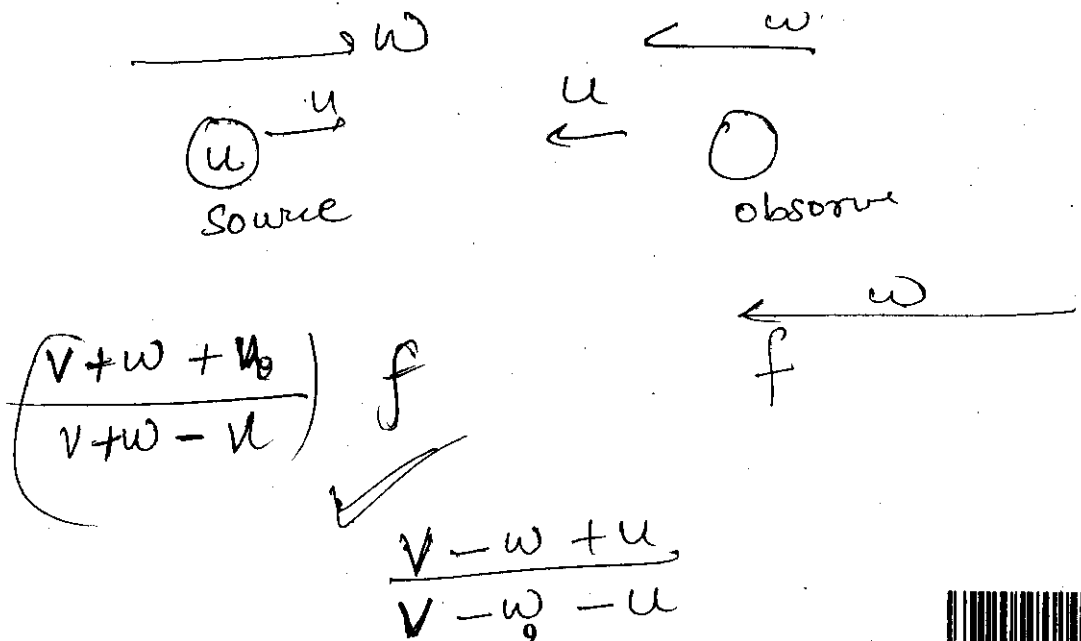 w w
u u
u
source observe
w
(V+w+u₀ / V+w-u) f f
V-w+u / V-w-u
9